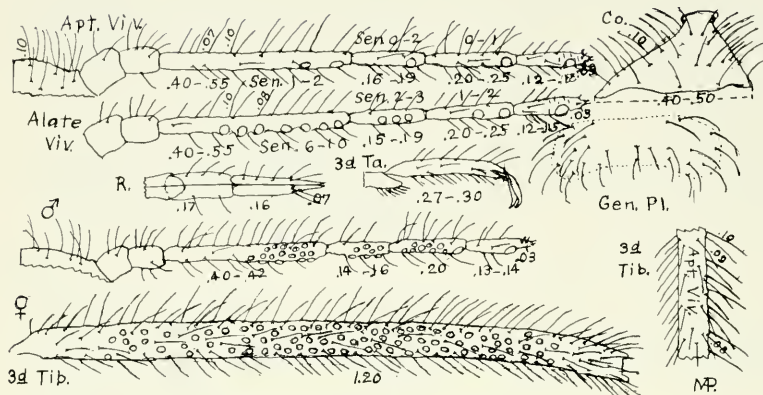 Apt. Viv.
.10
.07 .10
Sen. 0-2 0-1
.40-.55 Sen. 1-2 .16-.19 .20-.25 .12-.18 .03
Co.
.10
.40-.50
Alate Viv.
.10 .08
Sen. 2-3 1-2
.40-.55 Sen. 6-10 .15-.19 .20-.25 .12-.15 .03
R.
.17 .16 .07
3d Ta.
.27-.30
Gen. Pl.
♂
.40-.42 .14-.16 .20 .13-.14 .03
3d Tib.
Apt. Viv.
.10
.09
♀
3d Tib.
1.20
MP.